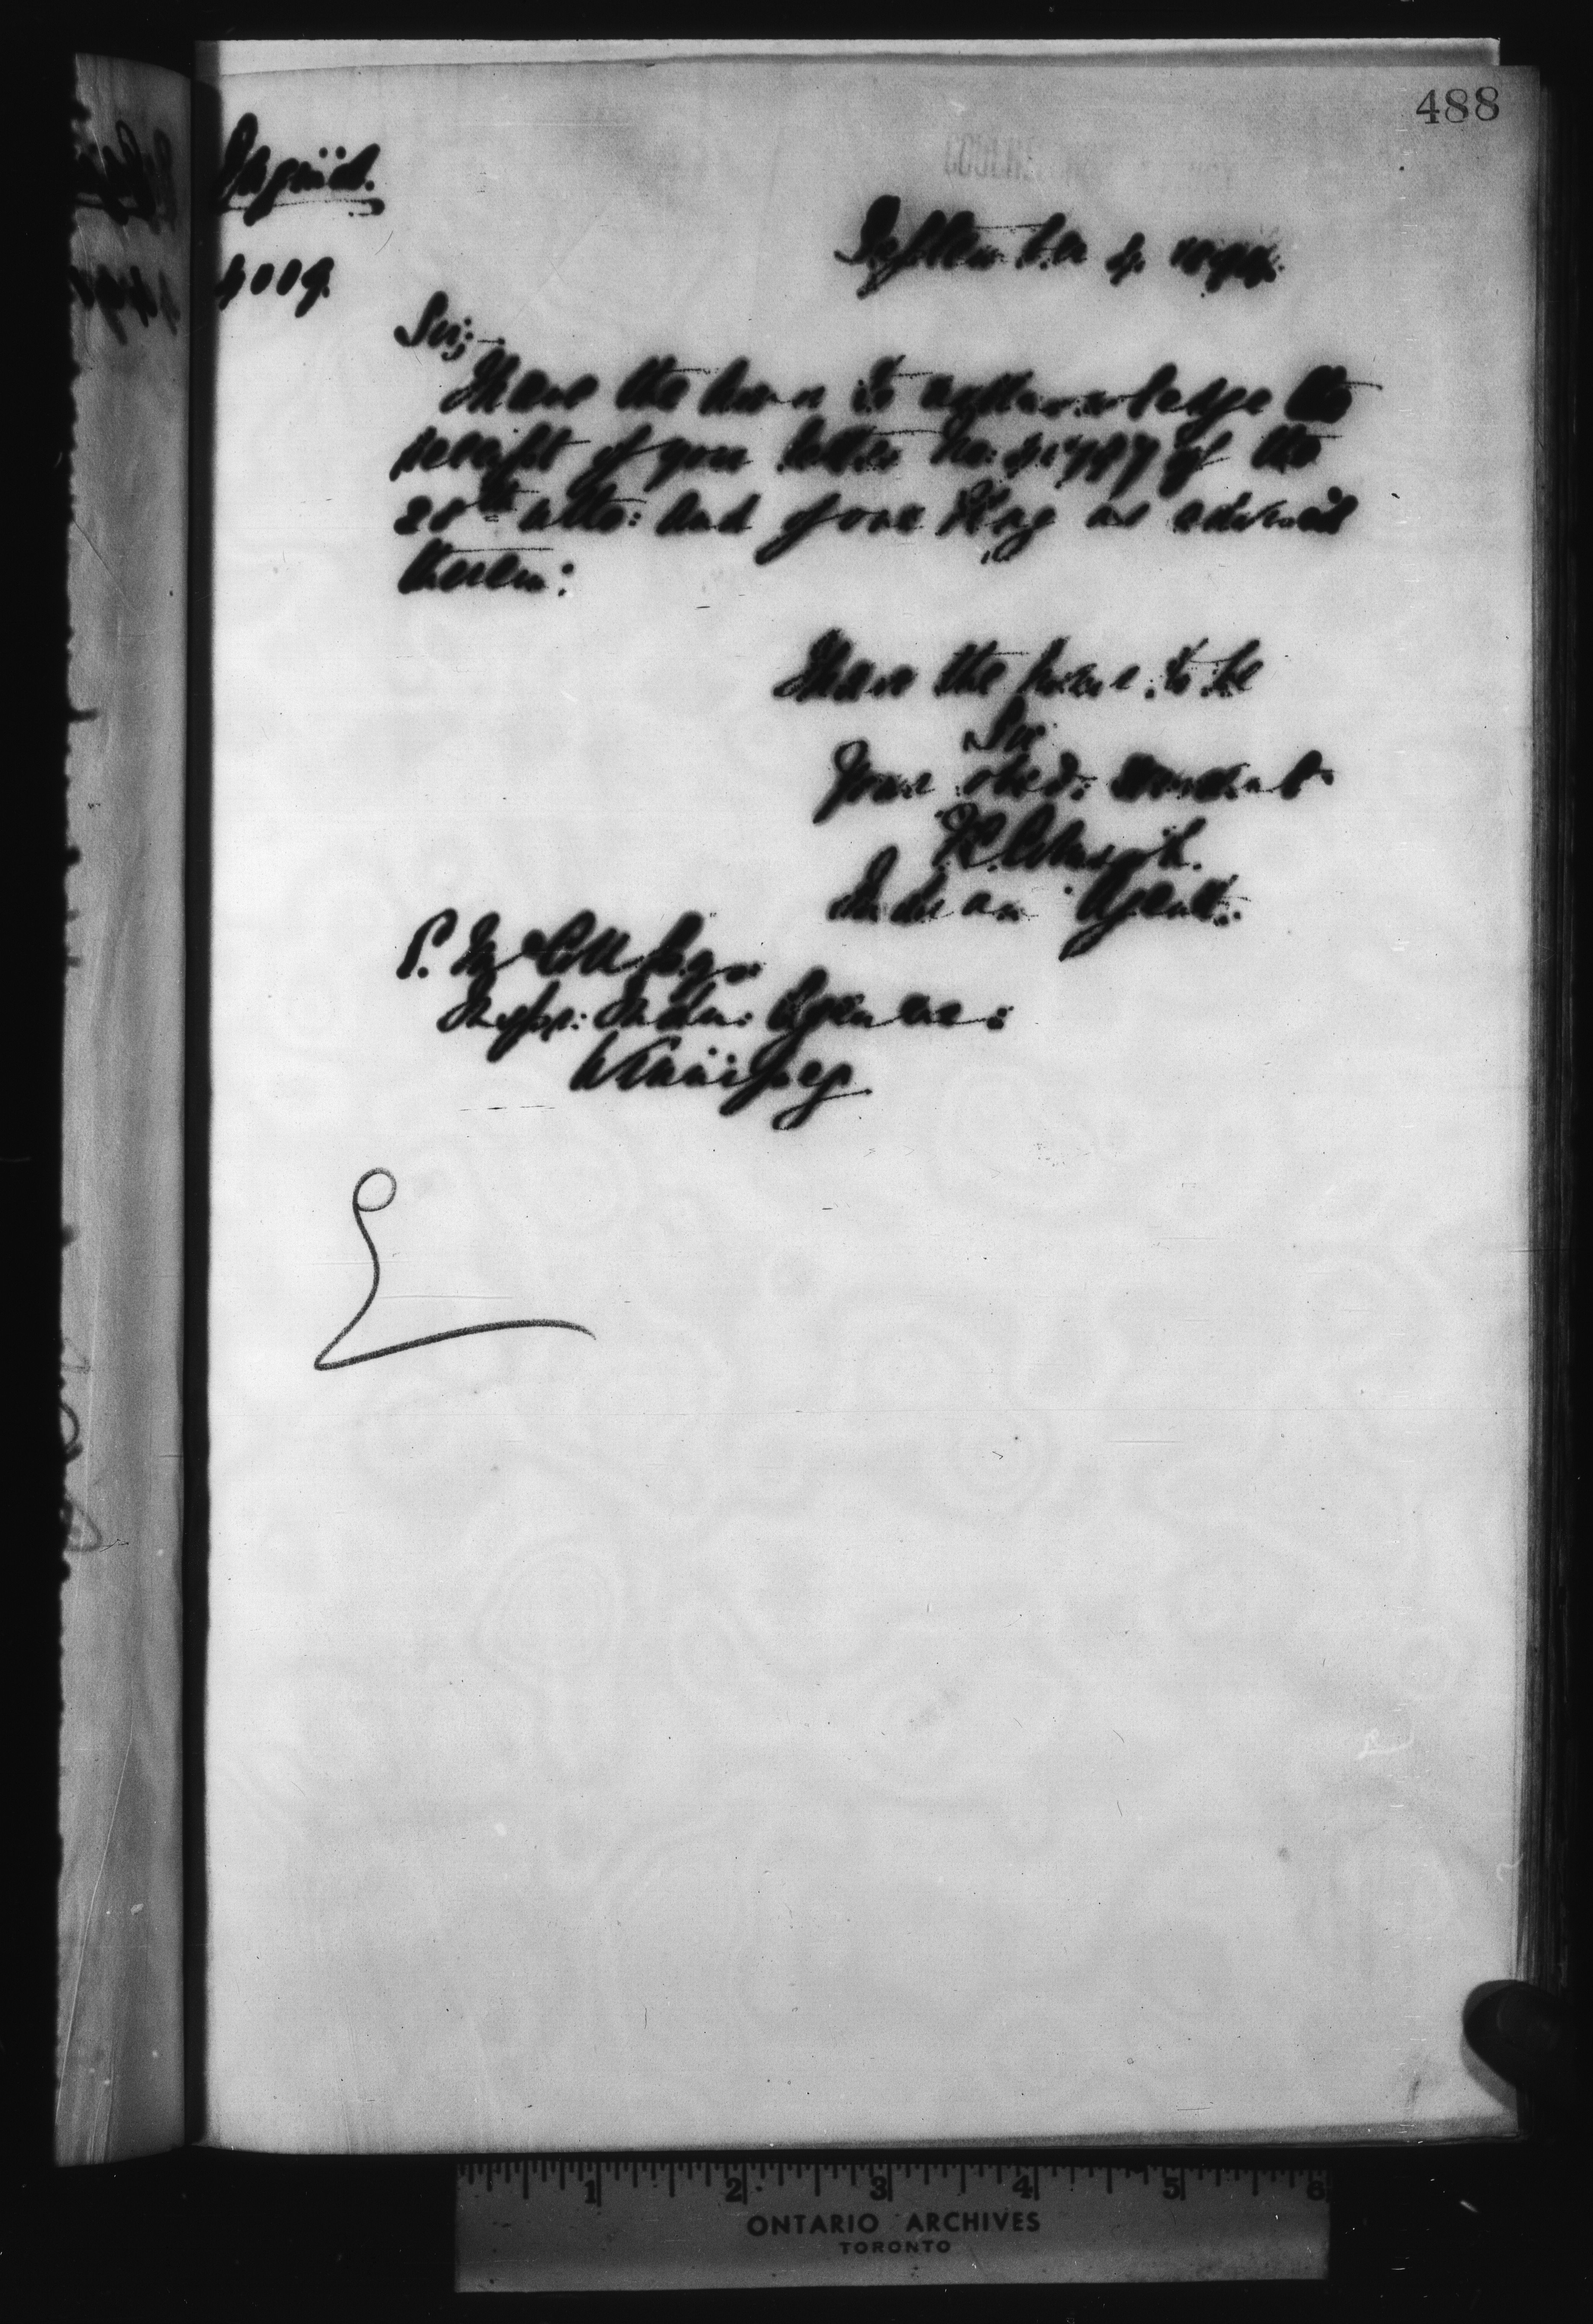 488
September 4. 1894.
4009.
Sir;
I have the honor to acknowledge the
receipt of your letter No: of the
20th ulto: and of one Flag as advised
therein:
I have the honor to be
Sir
Your obed: servant
Indian Agent.
E. McColl Esq.
Inspr: Indn: Agencies:
Winnipeg
1 2 3 4 5 6
ONTARIO ARCHIVES
TORONTO